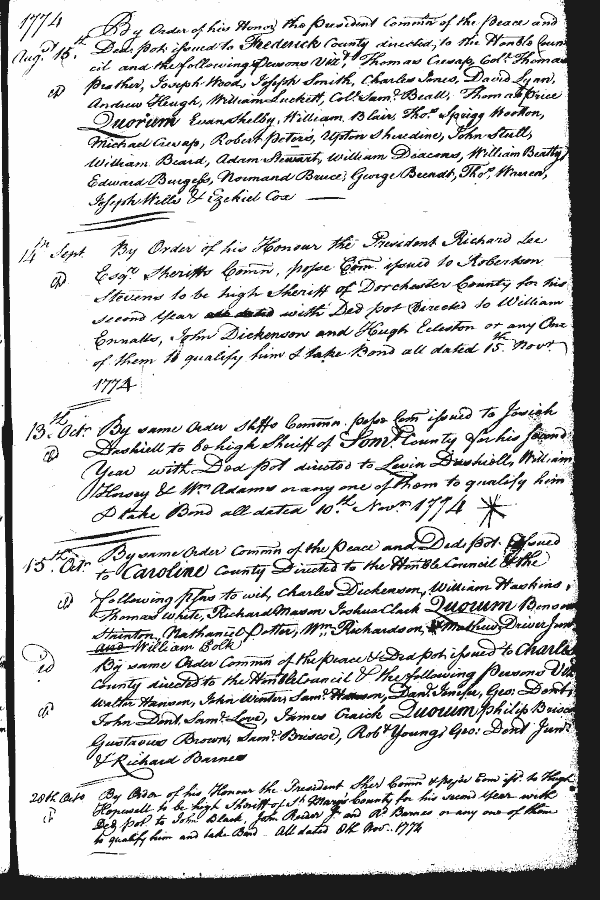 1774
Augt 15th By Order of his Honor the President Commn of the Peace and
Ded. pot. issued to Frederick County directed, to the Honble Coun
cil and the following Persons Vizt Thomas Cresap, Colo Thomas
Prather, Joseph Wood, Joseph Smith, Charles Jones, David Lynn,
Andrew Heugh, William Luckett, Colo Saml Beall, Thomas Price
Quorum Evan Shelby, William Blair, Thos Sprigg Wootton,
Michael Cresap, Robert Peters, Upton Sheredine, John Stull,
William Beard, Adam Stewart, William Deacons, William Beatty
Edward Burgess, Normand Bruce, George Burndt, Thos Warren,
Joseph Wells & Ezekiel Cox
14th Sept. By Order of his Honour the President Richard Lee
Esqr Sheriffs Commn, posse Com. issued to Robertson
Stevens to be high Sheriff of Dorchester County for his
second Year all dated with Ded pot Directed to William
Ennalls, John Dickenson and Hugh Ecleston or any One
of them to qualify him & take Bond all dated 15th Novr
1774
13th Octr By same Order Shffs Commn. posse Com issued to Josiah
Dashiell to be high Sheriff of Somt County for his second
Year with Ded pot directed to Levin Dashiell, William
Horsey & Wm Adams or any one of them to qualify him
& take Bond all dated 10th Novr 1774
15th Octr By same Order Commn of the Peace and Ded. pot. issued
to Caroline County Directed to the Honble Council & the
following psns to wit, Charles Dickenson, William Haskins,
Thomas White, Richard Mason Joshua Clark Quorum Benson
Stainton, Nathaniel Potter, Wm Richardson, & Mathew Driver Junr
and William Bolk
By same Order Commn of the peace & Ded pot issued to Charles
County directed to the Honble Council & the following Persons Vizt
Walter Hanson, John Winter, Saml Hanson, Danl Jenifer, Geo: Dent,
John Dent, Saml Love, James Craick Quorum Philip Briscoe
Gustavus Brown, Saml Briscoe, Robt Young, Geo: Dent Junr
& Richard Barnes
28th Octo By Order of his Honour the President Sher Commn & posse Com issd to Hugh
Hopewell to be high Sheriff of St Marys County for his second Year with
Ded pot to John Black, John Reeder Jr and Rd Barnes or any one of them
to qualify him and take Bond All dated 8th Nov. 1774